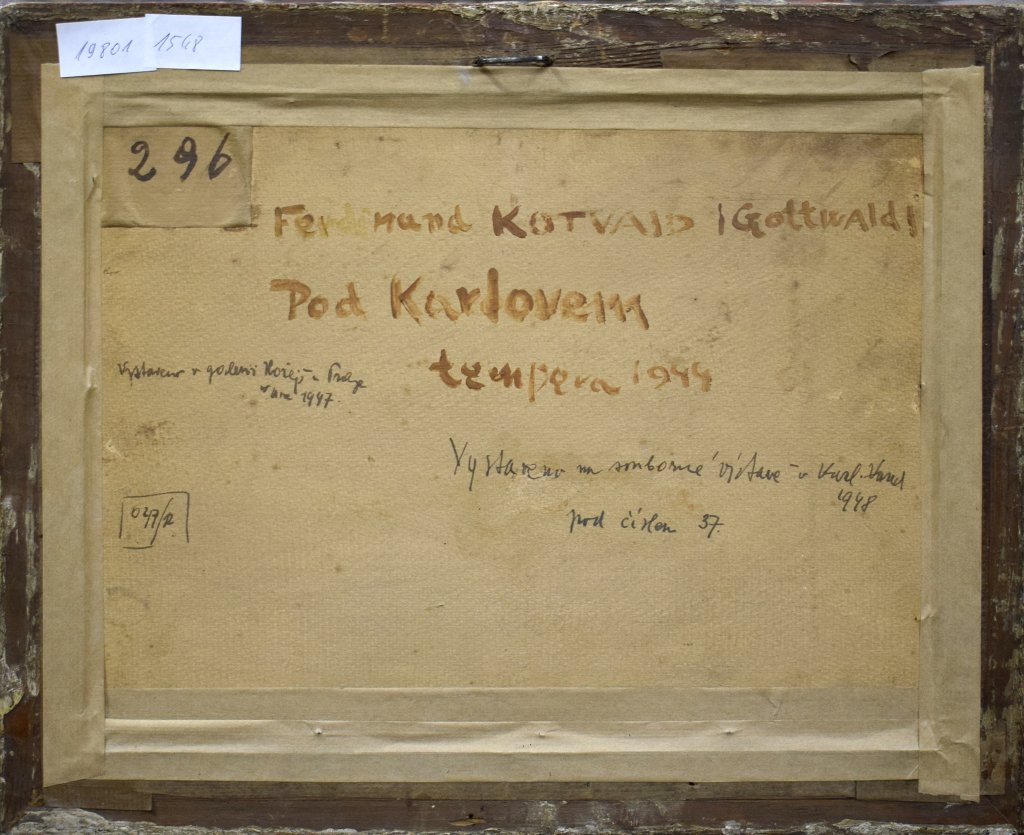 19801 1548
296
Ferdinand KOTVALD /Gottwald/
Pod Karlovem
tempera 1944
Vystaveno v galerii v Praze
1947.
Vystaveno na souborné výstavě v Karl. Var
1948
pod číslem 37.